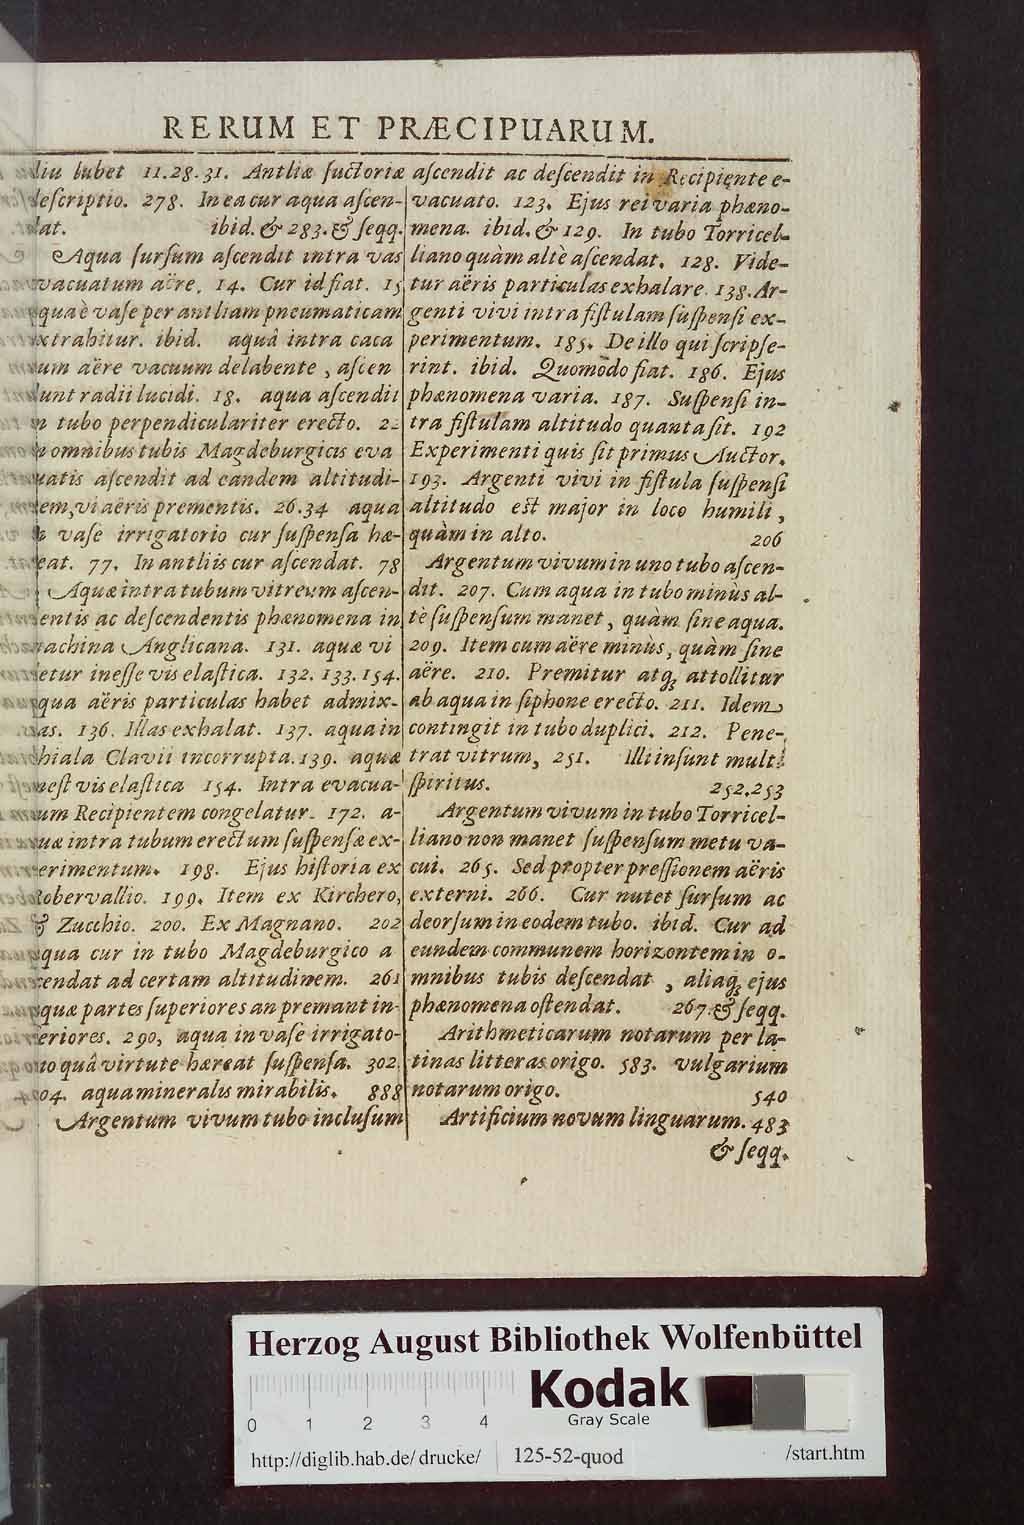 RERUM ET PRÆCIPUARUM.
liu lubet 11.28.31. Antliæ ſuctoriæ
deſcriptio. 278. In ea cur aqua aſcen-
dat. ibid. & 283. & ſeqq.
Aqua ſurſum aſcendit intra vas
vacuatum aëre, 14. Cur id fiat. 15
què vaſe per antliam pneumaticam
extrahitur. ibid. aquâ intra caca
um aëre vacuum delabente, aſcen
dunt radii lucidi. 18. aqua aſcendit
in tubo perpendiculariter erecto. 22
omnibus tubis Magdeburgicis eva
uatis aſcendit ad eandem altitudi-
em, vi aëris prementis. 26.34 aqua
vaſe irrigatorio cur ſuſpenſa hæ-
eat. 77. In antliis cur aſcendat. 78
Aquæ intra tubum vitreum aſcen-
entis ac deſcendentis phænomena in
achina Anglicana. 131. aquæ vi
etur ineſſe vis elaſtica. 132. 133. 154.
qua aëris particulas habet admix-
as. 136. Illas exhalat. 137. aqua in
hiala Clavii incorrupta. 139. aquæ
neſt vis elaſtica 154. Intra evacua-
um Recipientem congelatur. 172. a-
uæ intra tubum erectum ſuſpenſæ ex-
erimentum. 198. Ejus hiſtoria ex
obervallio. 199. Item ex Kirchero,
& Zucchio. 200. Ex Magnano. 202
qua cur in tubo Magdeburgico a
cendat ad certam altitudinem. 261
quæ partes ſuperiores an premant in-
eriores. 290, aqua in vaſe irrigato-
o quâ virtute hæreat ſuſpenſa. 302,
04. aqua mineralis mirabilis. 888
Argentum vivum tubo incluſum
aſcendit ac deſcendit in Recipiente e-
vacuato. 123. Ejus rei varia phæno-
mena. ibid. & 129. In tubo Torricel-
liano quàm altè aſcendat. 128. Vide-
tur aëris particulas exhalare. 138. Ar-
genti vivi intra fiſtulam ſuſpenſi ex-
perimentum. 185. De illo qui ſcripſe-
rint. ibid. Quomodo fiat. 186. Ejus
phænomena varia. 187. Suſpenſi in-
tra fiſtulam altitudo quanta ſit. 192
Experimenti quis ſit primus Auctor.
193. Argenti vivi in fiſtula ſuſpenſi
altitudo eſt major in loco humili,
quàm in alto. 206
Argentum vivum in uno tubo aſcen-
dit. 207. Cum aqua in tubo minùs al-
tè ſuſpenſum manet, quàm ſine aqua.
209. Item cum aëre minùs, quàm ſine
aëre. 210. Premitur atq; attollitur
ab aqua in ſiphone erecto. 211. Idem
contingit in tubo duplici. 212. Pene-
trat vitrum, 251. Illi inſunt multi
ſpiritus. 252.253
Argentum vivum in tubo Torricel-
liano non manet ſuſpenſum metu va-
cui. 265. Sed propter preſſionem aëris
externi. 266. Cur nutet ſurſum ac
deorſum in eodem tubo. ibid. Cur ad
eundem communem horizontem in o-
mnibus tubis deſcendat, aliaq; ejus
phænomena oſtendat. 267. & ſeqq.
Arithmeticarum notarum per la-
tinas litteras origo. 583. vulgarium
notarum origo. 540
Artificium novum linguarum. 483
& ſeqq.
Herzog August Bibliothek Wolfenbüttel
Kodak
Gray Scale
0 1 2 3 4
http://diglib.hab.de/drucke/ 125-52-quod /start.htm